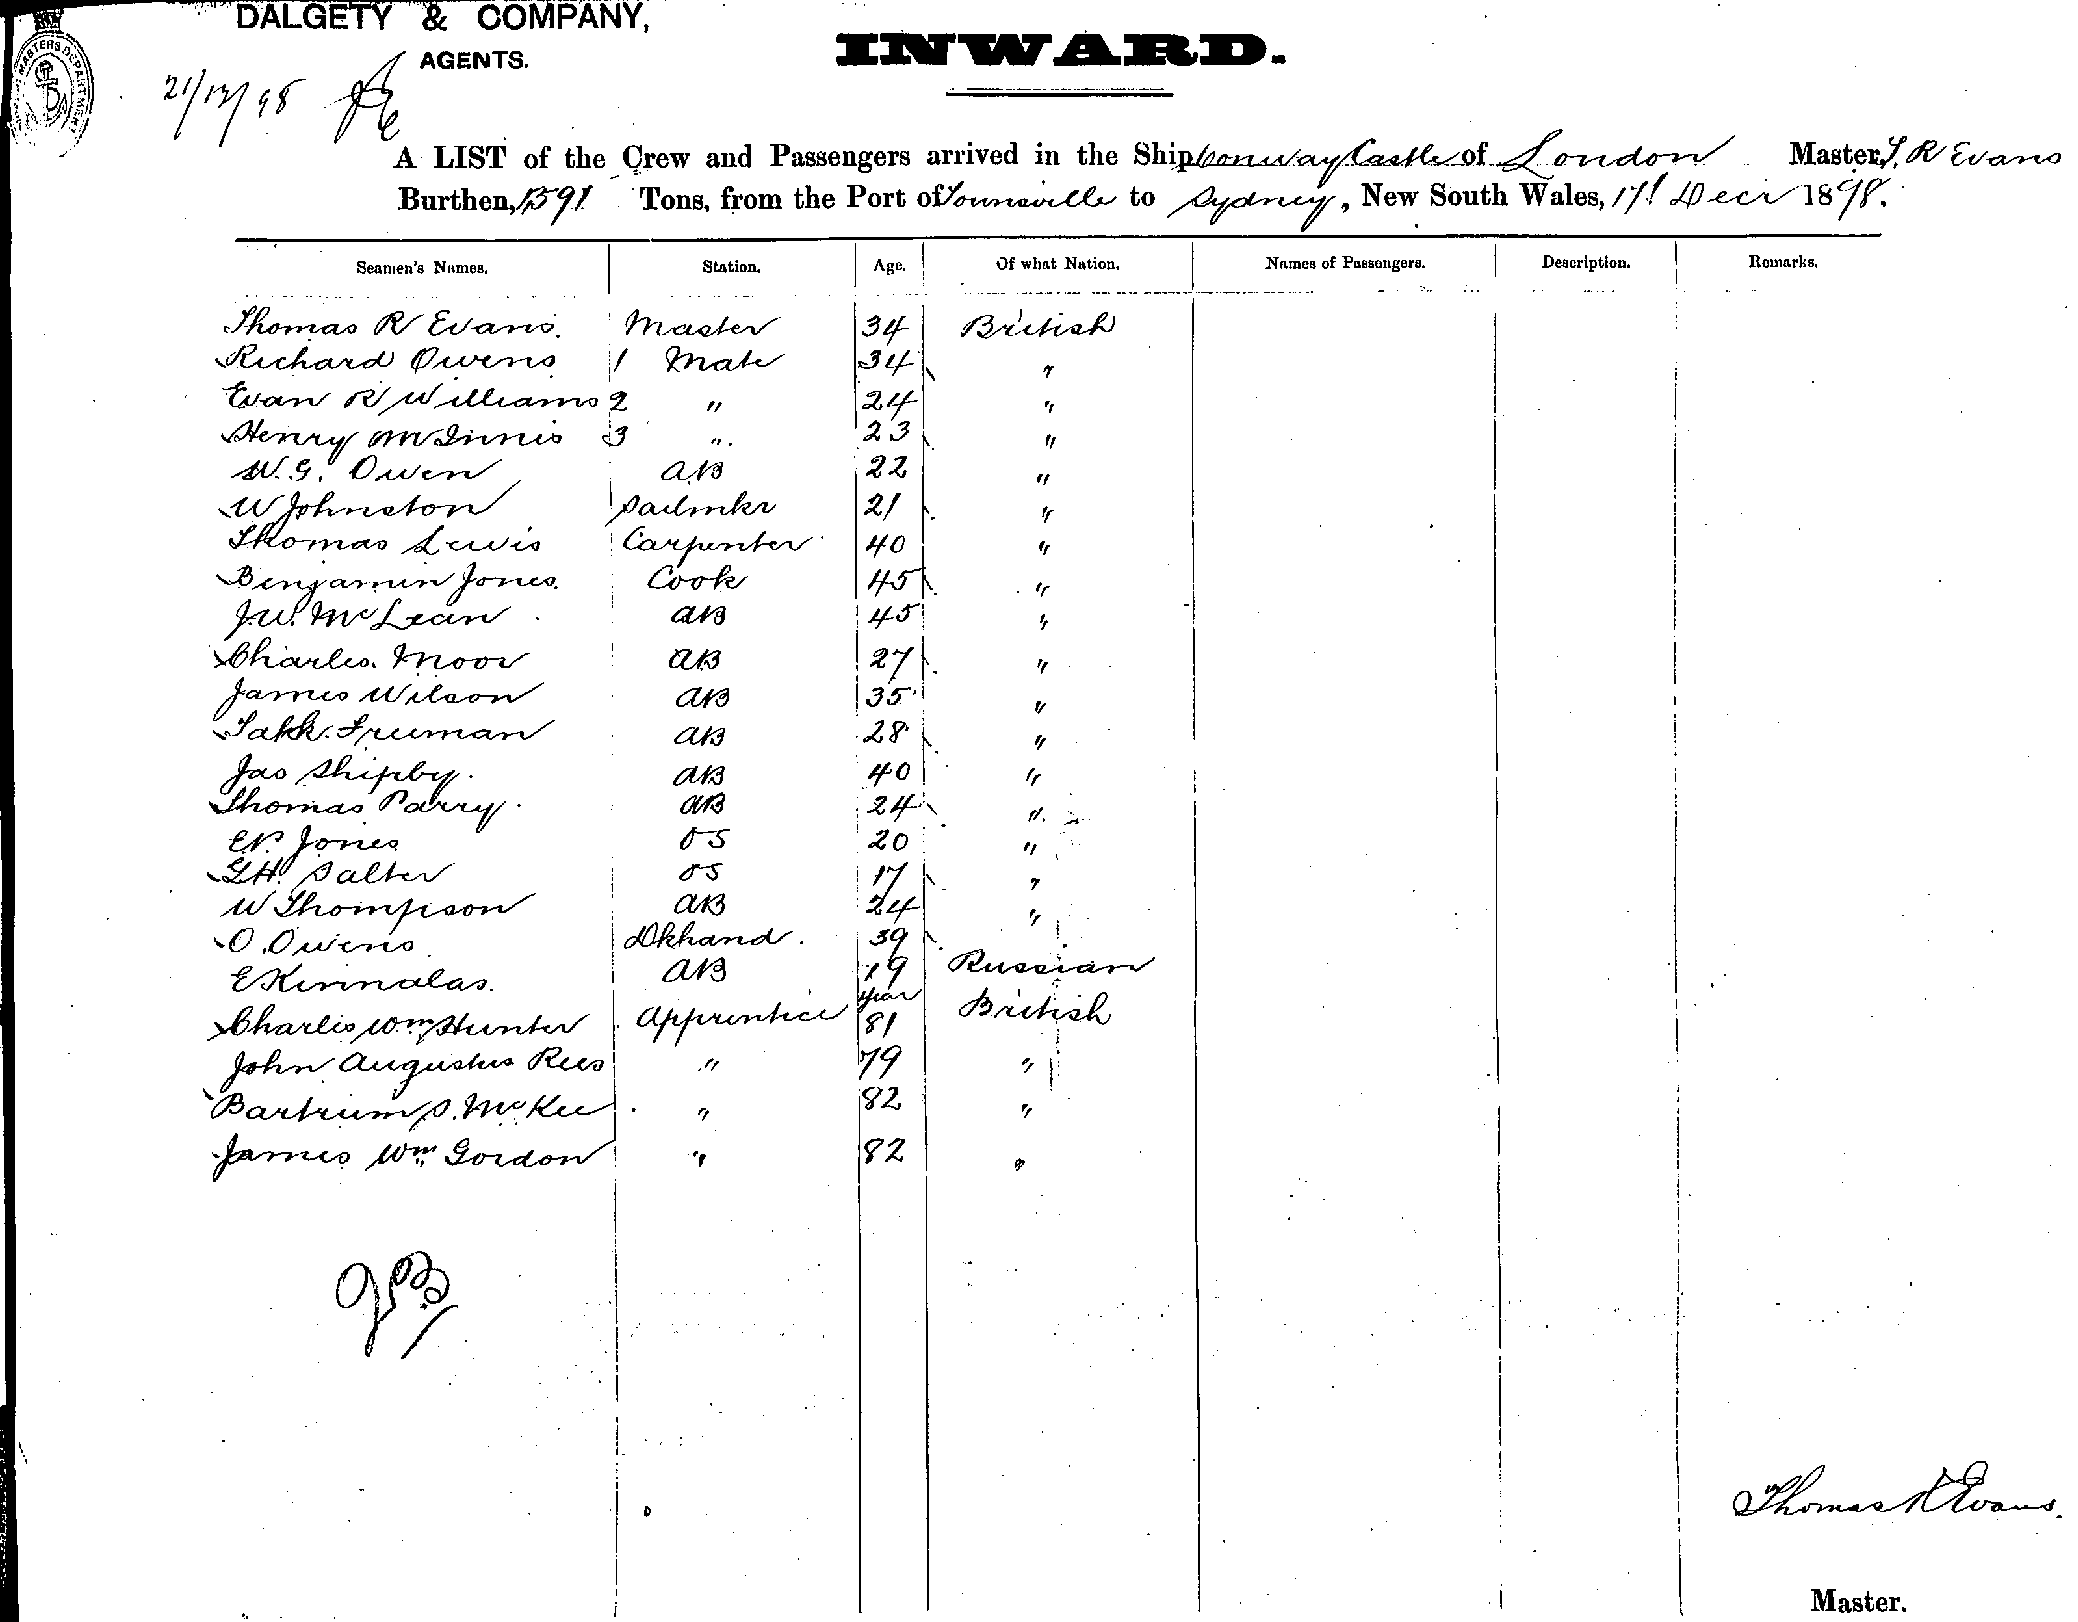 DALGETY & COMPANY,
AGENTS.
INWARD.
21/12/98
A LIST of the Crew and Passengers arrived in the Ship Conway Castle of London Master, T. R Evans
Burthen, 1591 Tons, from the Port of Townsville to Sydney, New South Wales, 17 Decr 1898.
Seamen's Names. Station. Age. Of what Nation. Names of Passengers. Description. Remarks.
Thomas R Evans. Master 34 British
Richard Owens 1 Mate 34 "
Evan R Williams 2 " 24 "
Henry McInnis 3 " 23 "
W. G. Owen AB 22 "
W Johnston Sailmkr 21 "
Thomas Lewis Carpenter 40 "
Benjamin Jones. Cook 45 "
J. W. McLean AB 45 "
Charles Moor AB 27 "
James Wilson AB 35 "
Truman AB 28 "
Jas Shipby. AB 40 "
Thomas Parry. AB 24 "
Jones OS 20 "
Salter OS 17 "
W Thompson AB 24 "
O. Owens Dkhand. 39 "
E AB 19 Russian
year
Charles Wm Hunter Apprentice 81 British
John Augustus Rees " 79 "
Bartrum S. McKee " 82 "
James Wm Gordon " 82 "
Thomas R Evans.
Master.